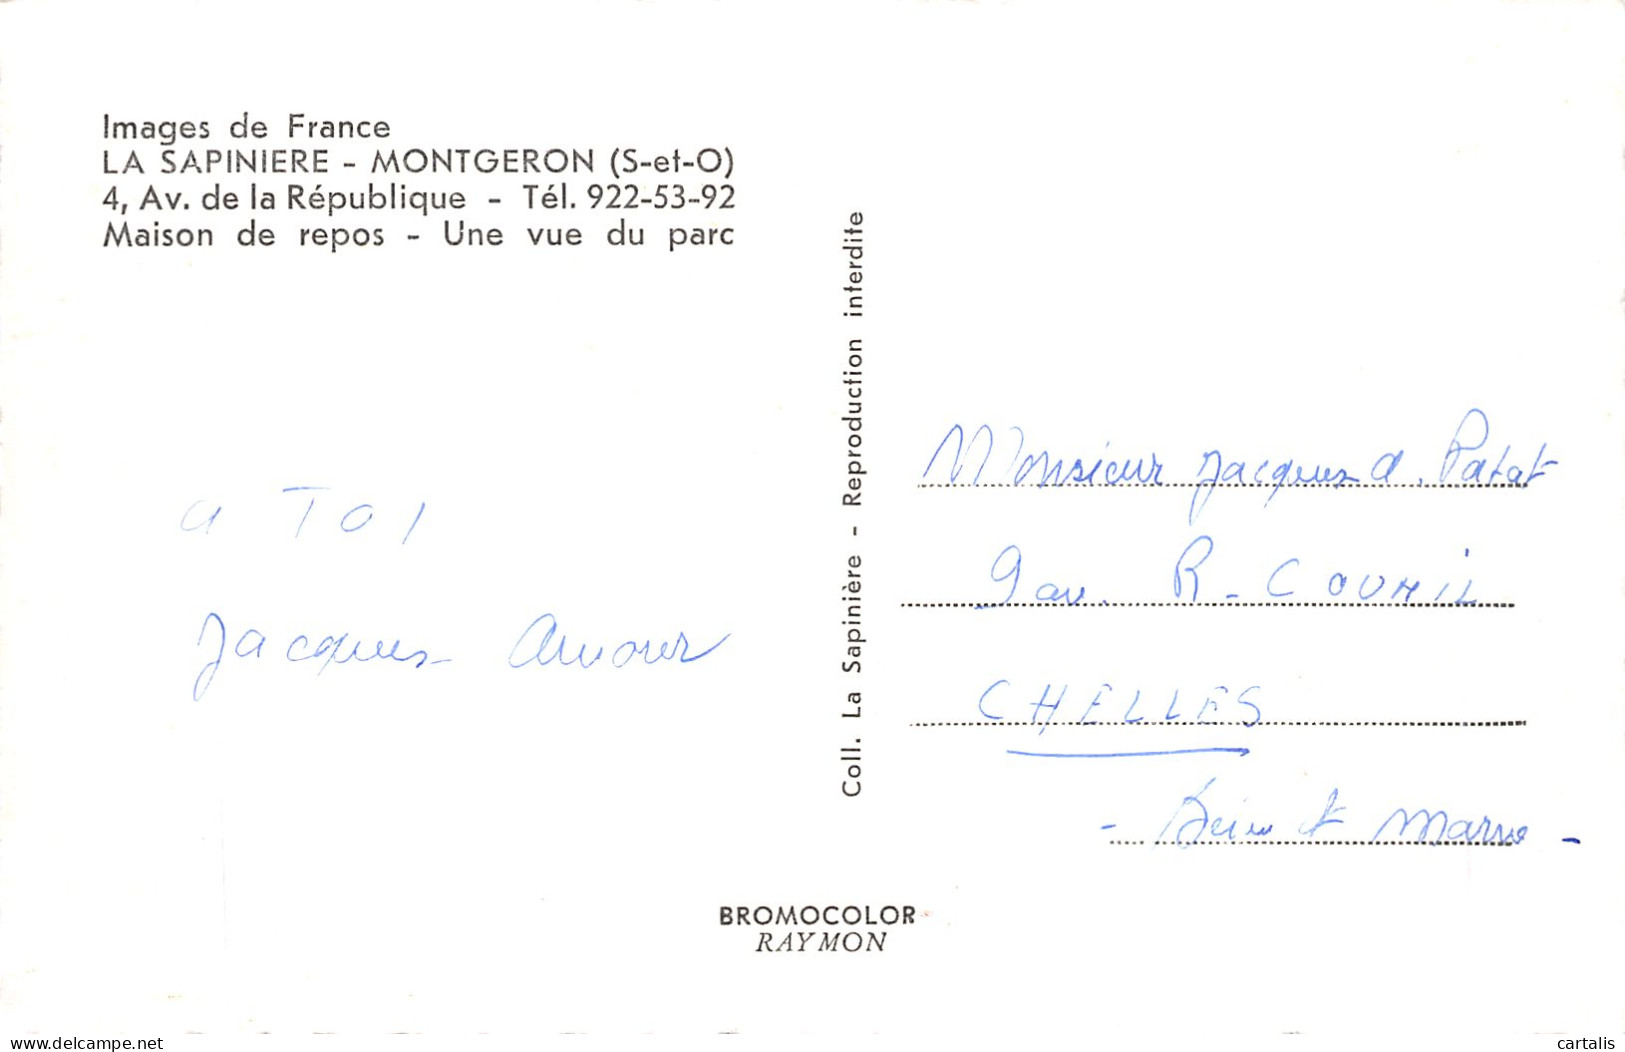 Images de France
LA SAPINIERE - MONTGERON (S-et-O)
4, Av. de la République - Tél. 922-53-92
Maison de repos - Une vue du parc
a TOI
Jacques Amour
Coll. La Sapinière - Reproduction interdite
Monsieur Jacques A. Patat
9 av. R-
CHELLES
- Seine et Marne -
BROMOCOLOR
RAYMON
delcampe.net
cartalis